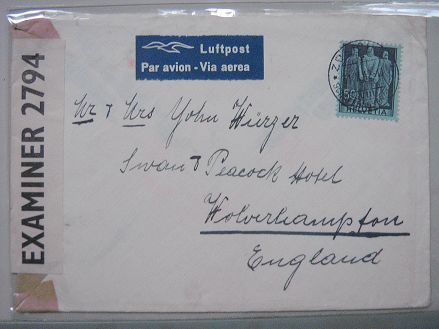 EXAMINER 2794
Luftpost
Par avion - Via aerea
50
HELVETIA
Mr + Mrs Yohn Würger
Swan + Peacock Hotel
Wolverhampton
England